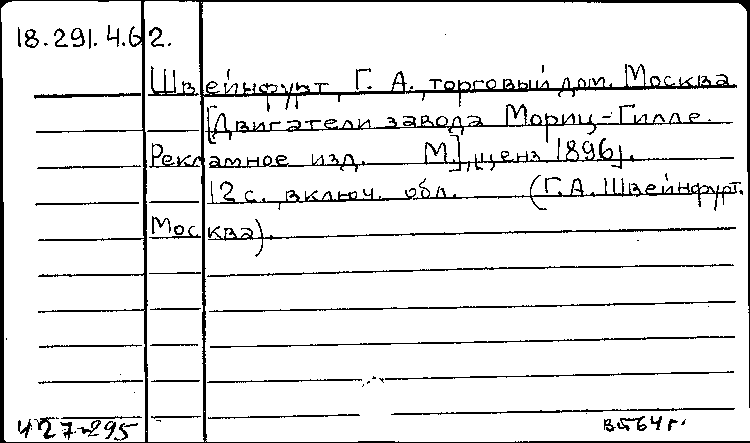 18.291.4.62.
Швейнфурт, Г. А., торговый дом. Москва
[Двигатели завода Мориц-Гилле.
Рекламное изд. М.], ценз 1896].
12 с. включ. обл. (Г.А. Швейнфурт.
Москва).
ч 27-295 64 г.